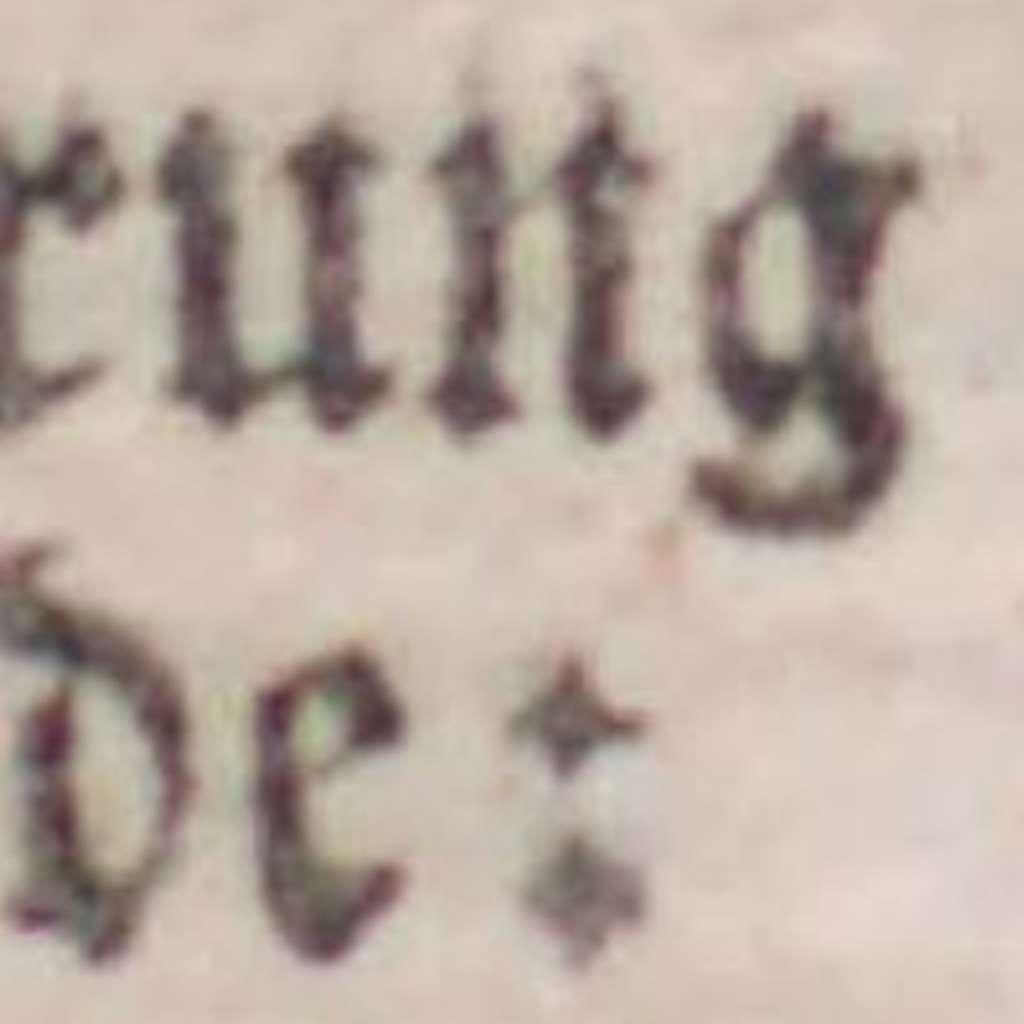 rung
de: